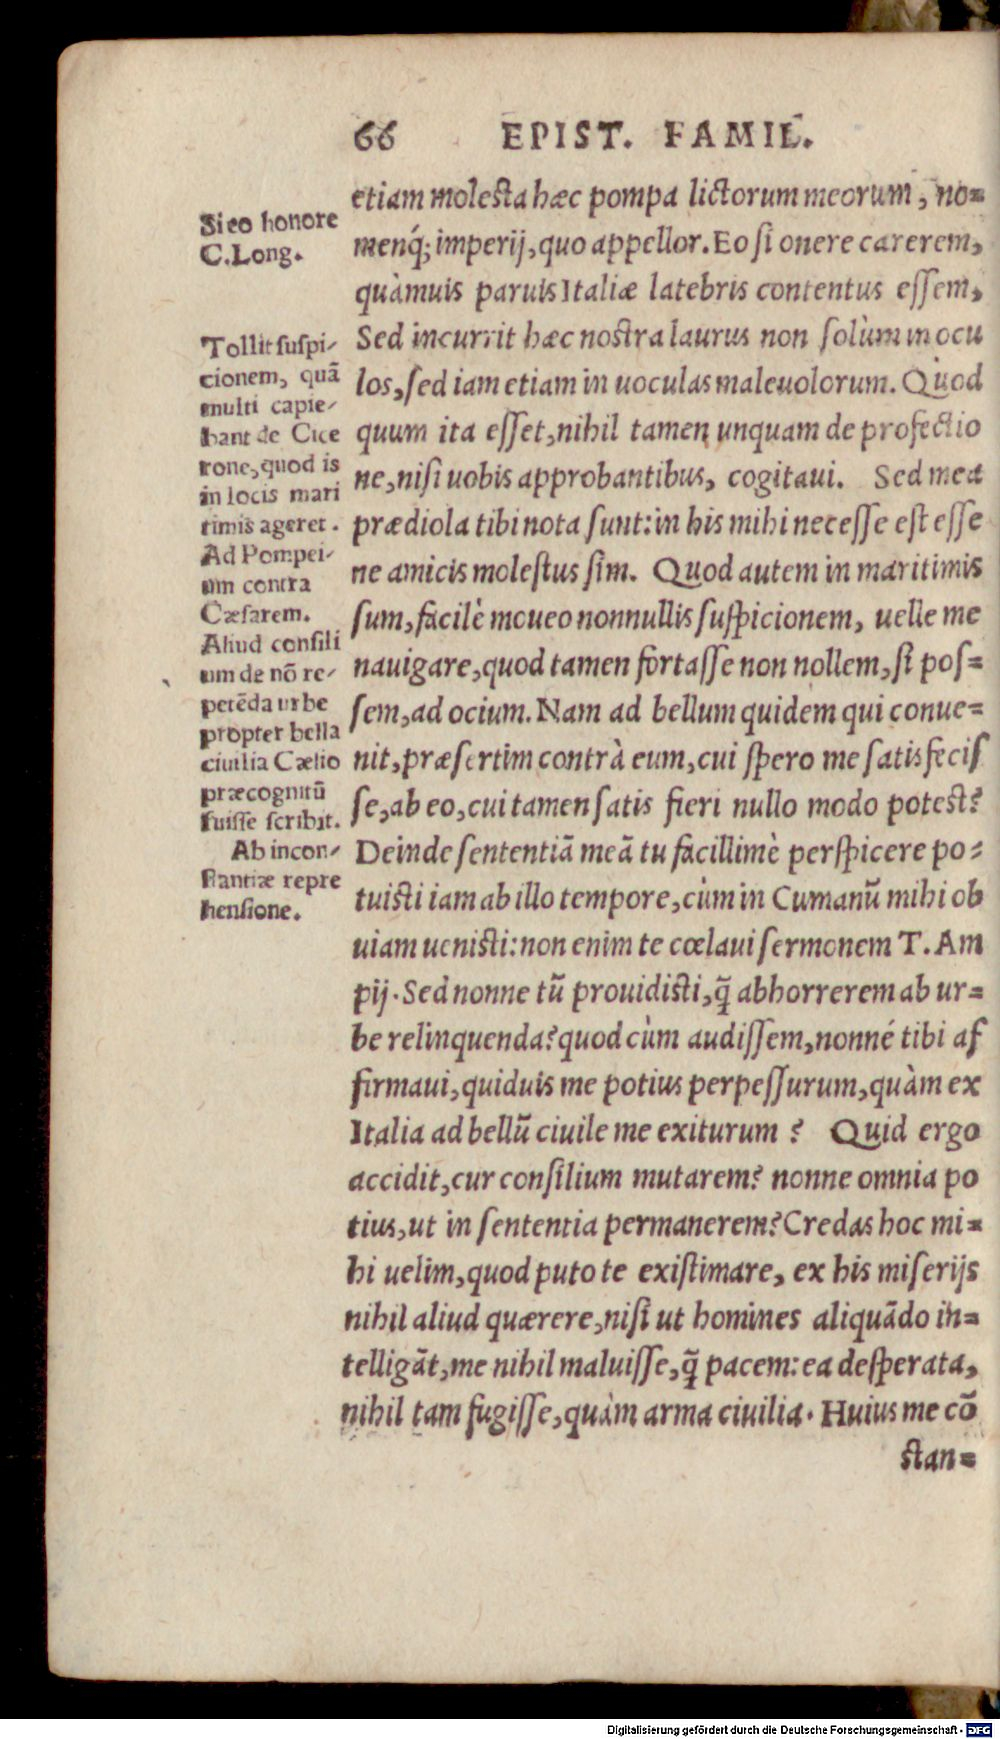 66 EPIST. FAMIL.
etiam molesta hæc pompa lictorum meorum, no=
menq́; imperij, quo appellor. Eo si onere carerem,
quàmuis paruis Italiæ latebris contentus essem,
Sed incurrit hæc nostra laurus non solùm in ocu
los, sed iam etiam in uoculas maleuolorum. Quod
quum ita esset, nihil tamen unquam de profectio
ne, nisi uobis approbantibus, cogitaui. Sed mea
prædiola tibi nota sunt: in his mihi necesse est esse
ne amicis molestus sim. Quod autem in maritimis
sum, facilè moueo nonnullis suspicionem, uelle me
nauigare, quod tamen fortasse non nollem, si pos=
sem, ad ocium. Nam ad bellum quidem qui conue=
nit, præsertim contrà eum, cui spero me satisfecis
se, ab eo, cui tamen satis fieri nullo modo potest?
Deinde sententiã meã tu facillimè perspicere po=
tuisti iam ab illo tempore, cùm in Cumanũ mihi ob
uiam uenisti: non enim te cœlaui sermonem T. Am
pij. Sed nonne tũ prouidisti, q̃ abhorrerem ab ur=
be relinquenda? quod cùm audissem, nonné tibi af
firmaui, quiduis me potius perpessurum, quàm ex
Italia ad bellũ ciuile me exiturum? Quid ergo
accidit, cur consilium mutarem? nonne omnia po
tius, ut in sententia permanerem? Credas hoc mi=
hi uelim, quod puto te existimare, ex his miserijs
nihil aliud quærere, nisi ut homines aliquãdo in=
telligãt, me nihil maluisse, q̃ pacem: ea desperata,
nihil tam fugisse, quàm arma ciuilia. Huius me cõ
stan=
Si eo honore
C. Long.
Tollit suspi-
cionem, quã
multi capie-
bant de Cice
rone, quod is
in locis mari
timis ageret.
Ad Pompei-
um contra
Cæsarem.
Aliud consili
um de nõ re-
petẽda urbe
propter bella
ciuilia Cælio
præcognitũ
fuisse scribit.
Ab incon-
stantiæ repre
hensione.
Digitalisierung gefördert durch die Deutsche Forschungsgemeinschaft - DFG